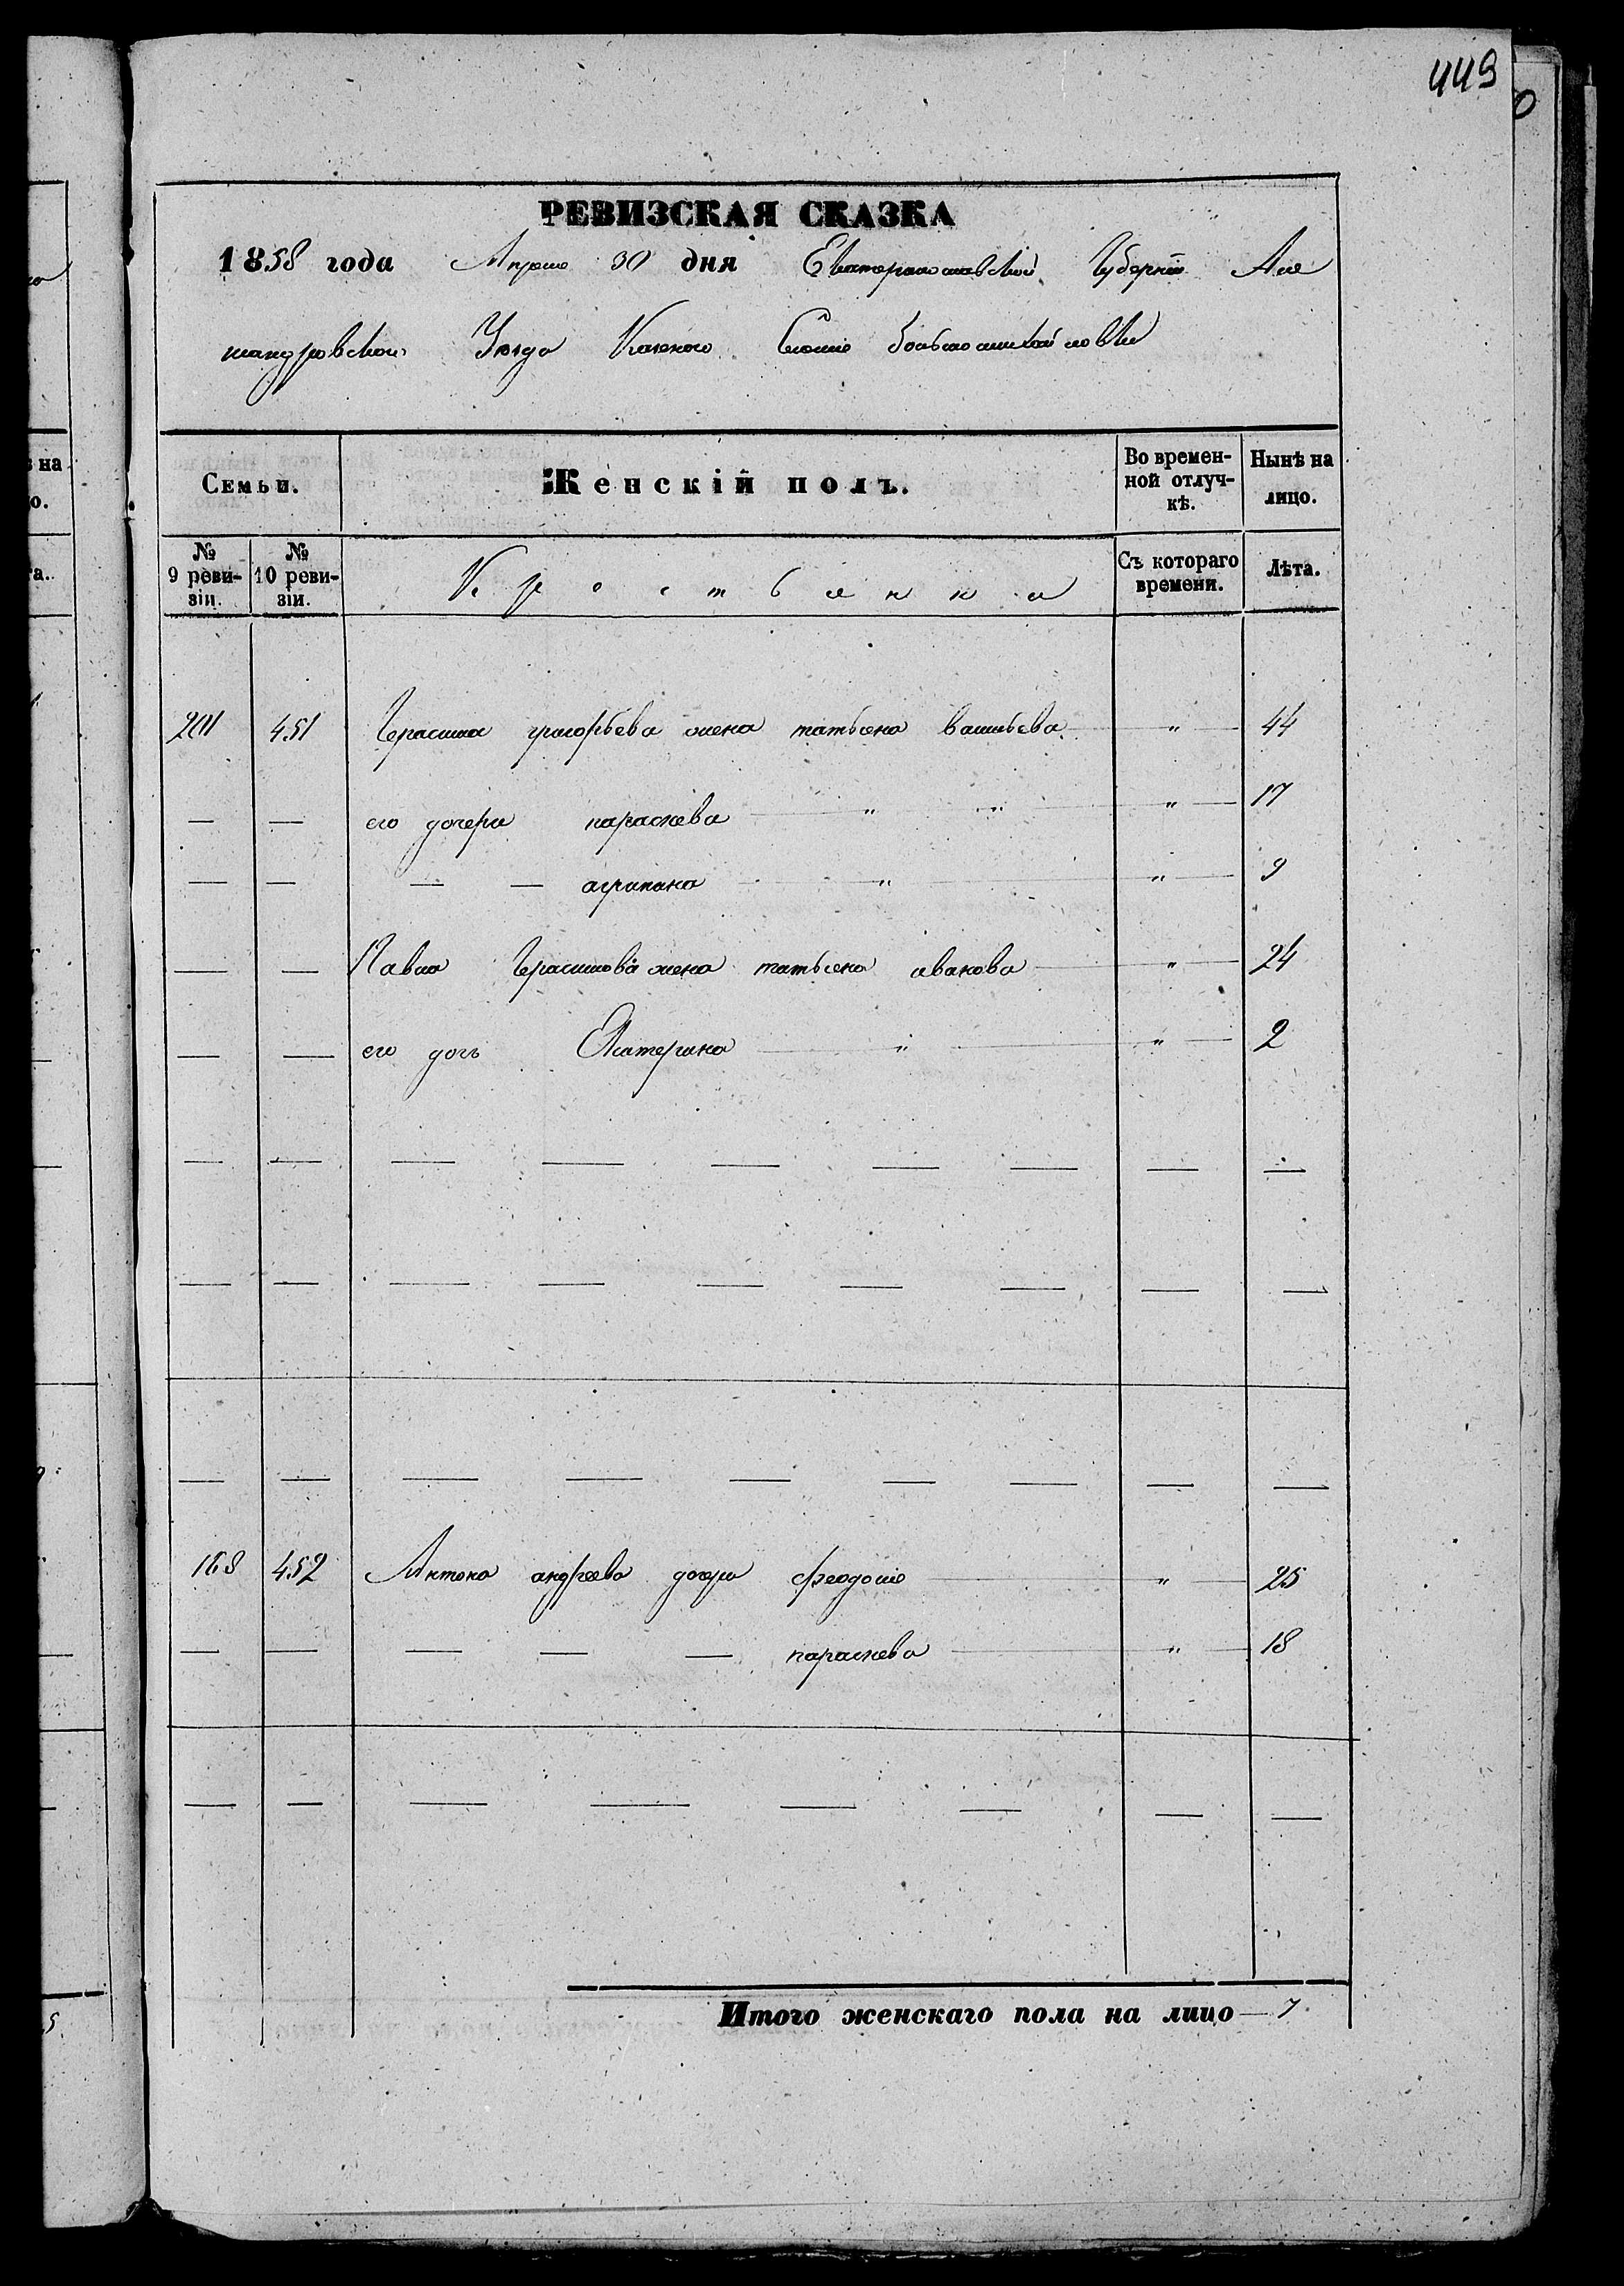 449
РЕВИЗСКАЯ СКАЗКА
1858 года Апреля 30 дня Екатеринославской Губернии Але
ксандровского Уезда Казеного Селения большомихайловки
Семьи. Женскій полъ. Во времен-ной отлуч-кѣ. Нынѣ на лицо.
№ 9 реви-зіи. № 10 реви-зіи. Крестьянки Съ котораго времени. Лѣта.
451 Герасима григорьева жена татьяна васильева " 44
— — его дочери параскева " " " 17
— — — — агрипина " " 9
— — Павла Герасимова жена татьяна иванова " 24
— — его дочь Екатерина " " 2
— — — — — — — — —
— — — — — — — — —
— — — — — — — — —
168 452 Антона андреева дочери феодосия " 25
— — — — — параскева " 18
— — — — — — — —
Итого женскаго пола на лицо — 7